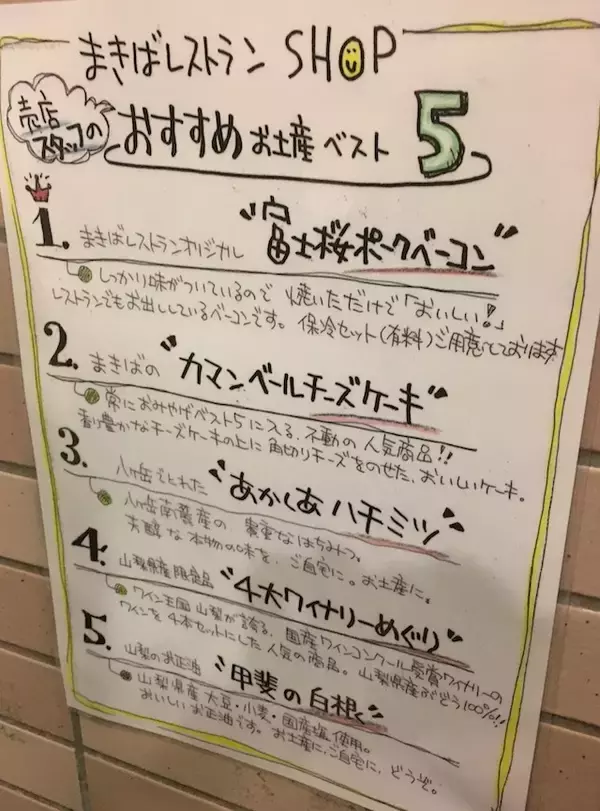 まきばレストラン SHOP
売店スタッフの
おすすめお土産ベスト 5
1. まきばレストランオリジナル "富士桜ポークベーコン"
しっかり味がついているので 焼いただけで「おいしい!」
レストランでもお出ししているベーコンです。保冷セット(有料)ご用意しております
2. まきばの "カマンベールチーズケーキ"
常におみやげベスト5に入る、不動の人気商品!!
香り豊かなチーズケーキの上に角切りチーズをのせた、おいしいケーキ。
3. 八ヶ岳でとれた "あかしあハチミツ"
八ヶ岳南麓産の 貴重なはちみつ。
芳醇な本物の味を、ご自宅に。お土産に。
4. 山梨県産限定品 "4大ワイナリーめぐり"
ワイン王国山梨が誇る、国産ワインコンクール受賞ワイナリーの
ワインを4本セットにした人気の商品。山梨県産ぶどう100%!!
5. 山梨のお正油 "甲斐の白根"
山梨県産大豆・小麦・国産塩使用。
おいしいお正油です。お土産に、ご自宅に、どうぞ。